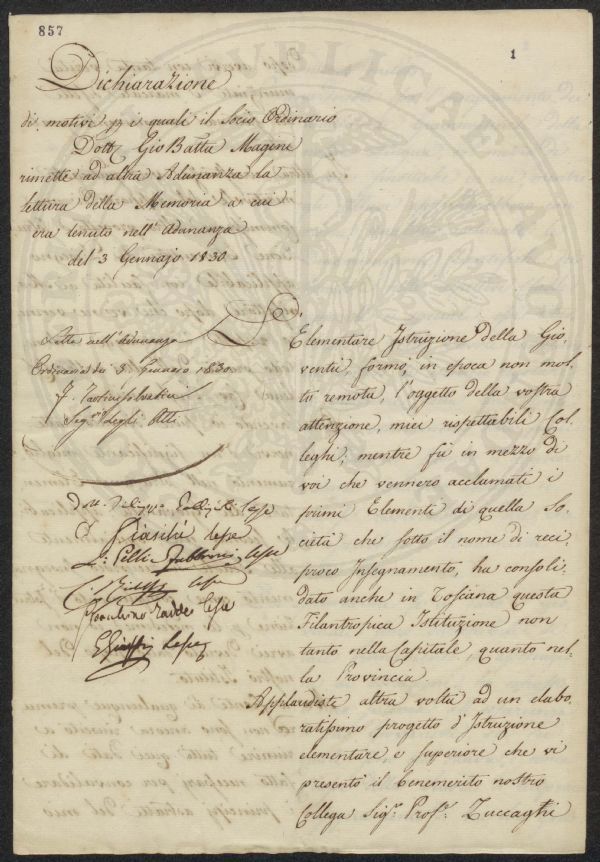 857
1
Dichiarazione
di motivi p i quali il Socio Ordinario
Dott. Gio Batta Magini
rimette ad altra Adunanza la
lettura della Memoria a cui
era tenuto nell' Adunanza
del 3 Gennajo 1830.
Letta nell' Adunanza
Ordinaria dei 3 Gennaio 1830
Seg. degli Atti
Dott. Filippo lesse
lesse
Pelli Fabbroni lesse
lesse
lesse
lesse
L'
Elementare Istruzione della Gio
ventù, formò, in epoca non mol
to remota, l'oggetto della vostra
attenzione, miei rispettabili Col
leghi; mentre fù in mezzo di
voi che vennero acclamati i
primi Elementi di quella So
cietà che sotto il nome di reci
proco Insegnamento, ha consoli
dato anche in Toscana questa
Filantropica Istituzione non
tanto nella Capitale, quanto nel-
la Provincia.
Applaudiste altra volta ad un elabo
ratissimo progetto d'Istruzione
elementare, e superiore che vi
presentò il benemerito nostro
Collega Sigr. Profr. Zuccagni